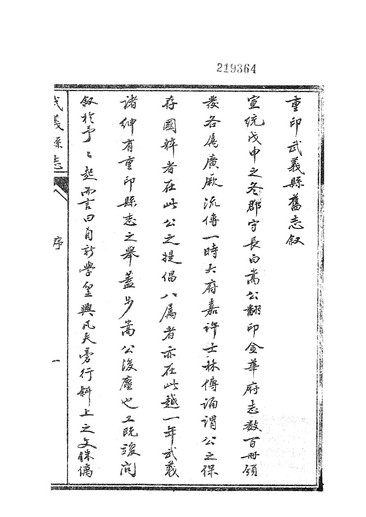 219364
重印武義縣舊志敘
宣統戊申之冬郡守長白嵩公翻印金華府志數百冊頒
發各屬廣厥流傳一時大府嘉許士林傳誦謂公之保
存國粹者在此公之提倡八屬者亦在此越一年武義
諸紳有重印縣志之舉蓋步嵩公後塵也工既竣問
敘於予予愁而言曰自新學皇興凡夫旁行斜上之文侏僑
武義縣志
序
一